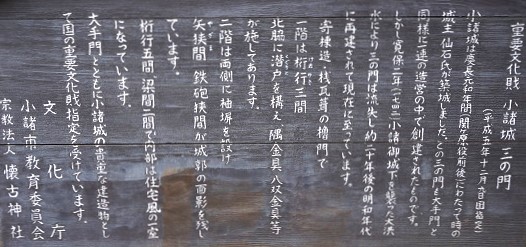 重要文化財 小諸城 三の門
(平成五年十二月六日国指定)
小諸城は慶長元和年間関ヶ原役前後にわたって時の
城主仙石氏が築城ました。この三の門も大手門と
同様に一連の造営の中で創建されたものです。
しかし寛保二年(一七四二)小諸御城下を襲った大洪
水により三の門は流失し約二十年後の明和年代
に再建されて現在に至っています。
寄棟造、桟瓦葺の櫓門で
一階は桁行三間
北脇に潜戸を構え 隅金具八双金具等
が施してあります。
二階は両側に袖塀を設け
矢狭間 鉄砲狭間が城郭の面影を残し
ています。
桁行五間 梁間二間で内部は住宅風の一室
になっています。
大手門とともに小諸城の貴重な建造物とし
て国の重要文化財指定を受けています。
文化庁
小諸市教育委員会
宗教法人 懐古神社